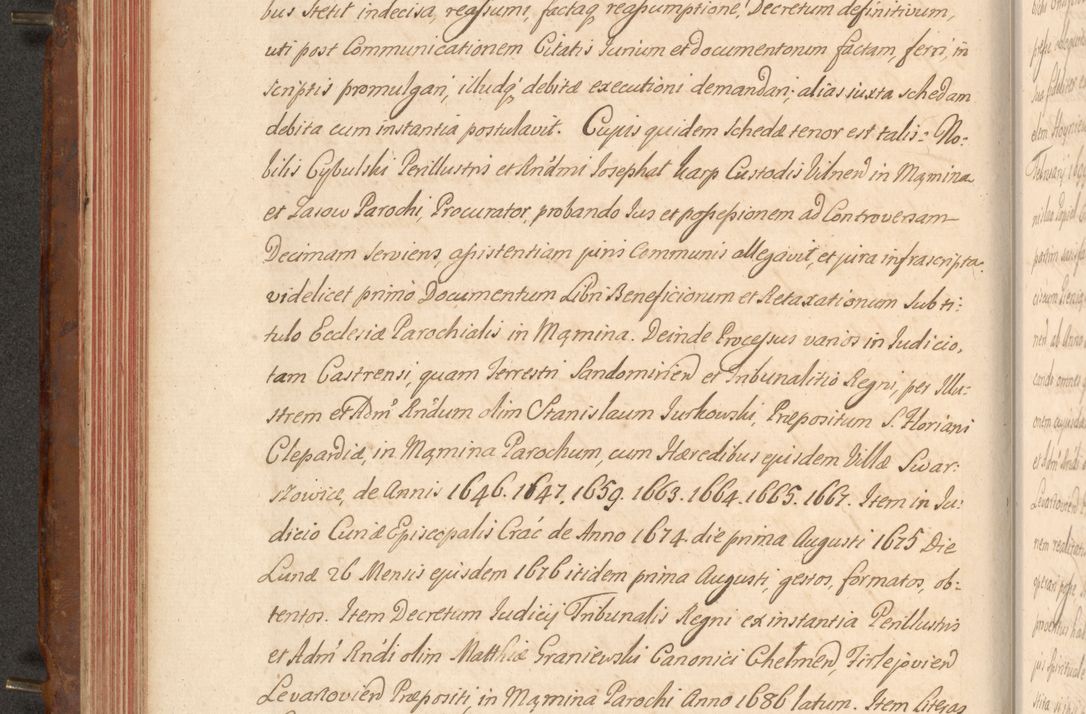 bus stetit indecisa, reassumi, factaq reassumptione, Decretum definitivum,
uti post Communicationem Citatis Iurium et documentorum factam, ferri, in
scriptis promulgari, illudq debitæ executioni demandari; alias iuxta schedam
debita cum instantia postulavit. Cujus quidem schedæ tenor est talis: No:
bilis Cybulski Perillustris et Rndmi Josephat Karp Custodis Vilnen in Mąmina
et Jasow Parochi, Procurator, probando Jus et possessionem ad Controversam
Decimam serviens, assistentiam juris Communis allegavit, et jura infrascripta
videlicet primo Documentum Libri Beneficiorum et Retaxationum sub ti:
tulo Ecclesiæ Parochialis in Mąmina. Deinde Processus varios in Judicio,
tam Castrensi, quam Terrestri Sandomirien et Tribunalitio Regni, per Illu:
strem et Adm Rndum olim Stanislaum Jurkowski, Præpositum S. Floriani
Clepardiæ, in Mąmina Parochum, cum Hæredibus ejusdem Villæ Swar:
szowice, de Annis 1646. 1647. 1659. 1663. 1664. 1665. 1667. Item in Ju:
dicio Curiæ Episcopalis Crac de Anno 1674 die prima Augusti 1675 Die
Lunæ 26 Mensis ejusdem 1676 itidem prima Augusti, gestos, formatos, ob:
tentos. Item Decretum Judicij Tribunalis Regni ex instantia Perillustris
et Adm Rndi olim Matthiæ Graniewski Canonici Chelmen, Tirlejovien
Levartovien Præpositi, in Mąmina Parochi Anno 1686 latum. Item Literas